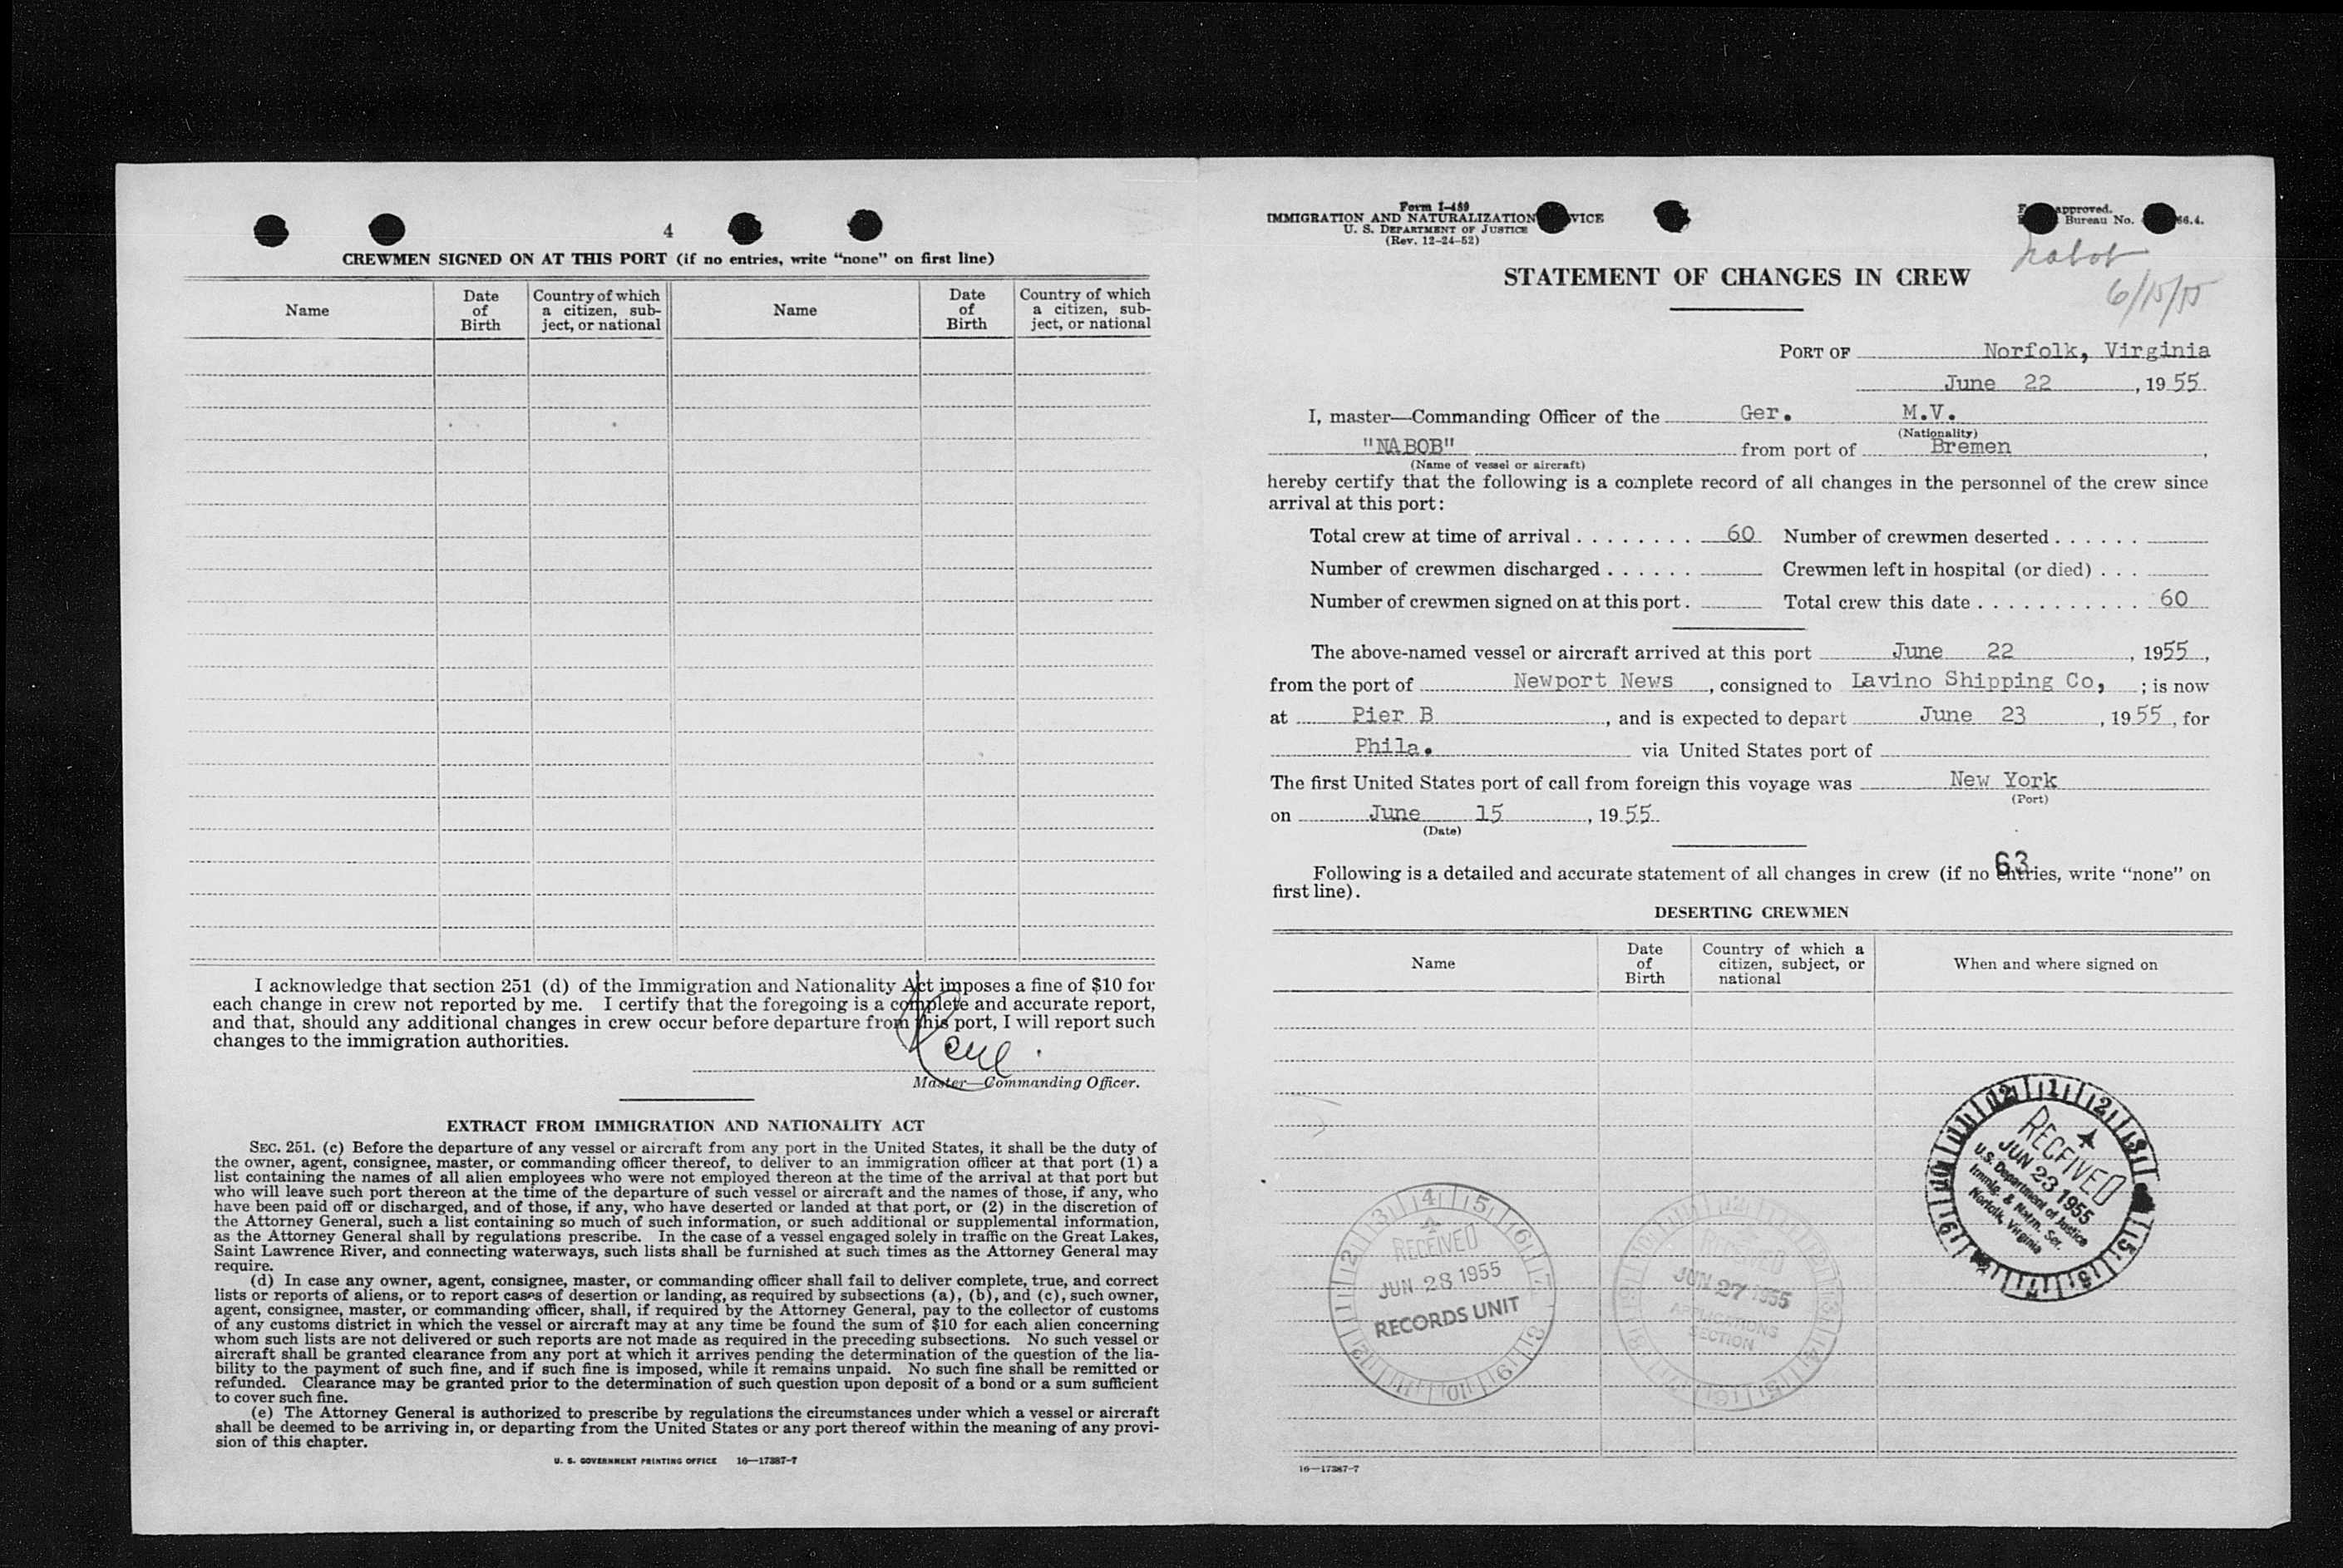 4
CREWMEN SIGNED ON AT THIS PORT (if no entries, write “none” on first line)
Name
Date of Birth
Country of which a citizen, sub-ject, or national
Name
Date of Birth
Country of which a citizen, sub-ject, or national
I acknowledge that section 251 (d) of the Immigration and Nationality Act imposes a fine of $10 for
each change in crew not reported by me. I certify that the foregoing is a complete and accurate report,
and that, should any additional changes in crew occur before departure from this port, I will report such
changes to the immigration authorities.
Master—Commanding Officer.
EXTRACT FROM IMMIGRATION AND NATIONALITY ACT
SEC. 251. (c) Before the departure of any vessel or aircraft from any port in the United States, it shall be the duty of
the owner, agent, consignee, master, or commanding officer thereof, to deliver to an immigration officer at that port (1) a
list containing the names of all alien employees who were not employed thereon at the time of the arrival at that port but
who will leave such port thereon at the time of the departure of such vessel or aircraft and the names of those, if any, who
have been paid off or discharged, and of those, if any, who have deserted or landed at that port, or (2) in the discretion of
the Attorney General, such a list containing so much of such information, or such additional or supplemental information,
as the Attorney General shall by regulations prescribe. In the case of a vessel engaged solely in traffic on the Great Lakes,
Saint Lawrence River, and connecting waterways, such lists shall be furnished at such times as the Attorney General may
require.
(d) In case any owner, agent, consignee, master, or commanding officer shall fail to deliver complete, true, and correct
lists or reports of aliens, or to report cases of desertion or landing, as required by subsections (a), (b), and (c), such owner,
agent, consignee, master, or commanding officer, shall, if required by the Attorney General, pay to the collector of customs
of any customs district in which the vessel or aircraft may at any time be found the sum of $10 for each alien concerning
whom such lists are not delivered or such reports are not made as required in the preceding subsections. No such vessel or
aircraft shall be granted clearance from any port at which it arrives pending the determination of the question of the lia-
bility to the payment of such fine, and if such fine is imposed, while it remains unpaid. No such fine shall be remitted or
refunded. Clearance may be granted prior to the determination of such question upon deposit of a bond or a sum sufficient
to cover such fine.
(e) The Attorney General is authorized to prescribe by regulations the circumstances under which a vessel or aircraft
shall be deemed to be arriving in, or departing from the United States or any port thereof within the meaning of any provi-
sion of this chapter.
U. S. GOVERNMENT PRINTING OFFICE 16—17387-7
Form I-489
IMMIGRATION AND NATURALIZATION VICE
U. S. DEPARTMENT OF JUSTICE
(Rev. 12-24-52)
approved.
Bureau No. 66.4.
Nabob
6/15/55
STATEMENT OF CHANGES IN CREW
PORT OF Norfolk, Virginia
June 22, 1955
I, master—Commanding Officer of the Ger. M.V.
(Nationality)
"NABOB" from port of Bremen,
(Name of vessel or aircraft)
hereby certify that the following is a complete record of all changes in the personnel of the crew since
arrival at this port:
Total crew at time of arrival . . . . . . . . 60 Number of crewmen deserted . . . . . .
Number of crewmen discharged . . . . . . Crewmen left in hospital (or died) . . .
Number of crewmen signed on at this port . Total crew this date . . . . . . . . . . . 60
The above-named vessel or aircraft arrived at this port June 22, 1955,
from the port of Newport News, consigned to Lavino Shipping Co, ; is now
at Pier B, and is expected to depart June 23, 1955, for
Phila. via United States port of
The first United States port of call from foreign this voyage was New York
(Port)
on June 15, 1955
(Date)
63
Following is a detailed and accurate statement of all changes in crew (if no entries, write “none” on
first line).
DESERTING CREWMEN
Name
Date of Birth
Country of which a citizen, subject, or national
When and where signed on
RECEIVED
JUN 23 1955
U.S. Department of Justice
Immig. & Natzn. Ser.
Norfolk, Virginia
RECEIVED
JUN 28 1955
RECORDS UNIT
RECEIVED
JUN 27 1955
APPLICATIONS
SECTION
16—17387-7